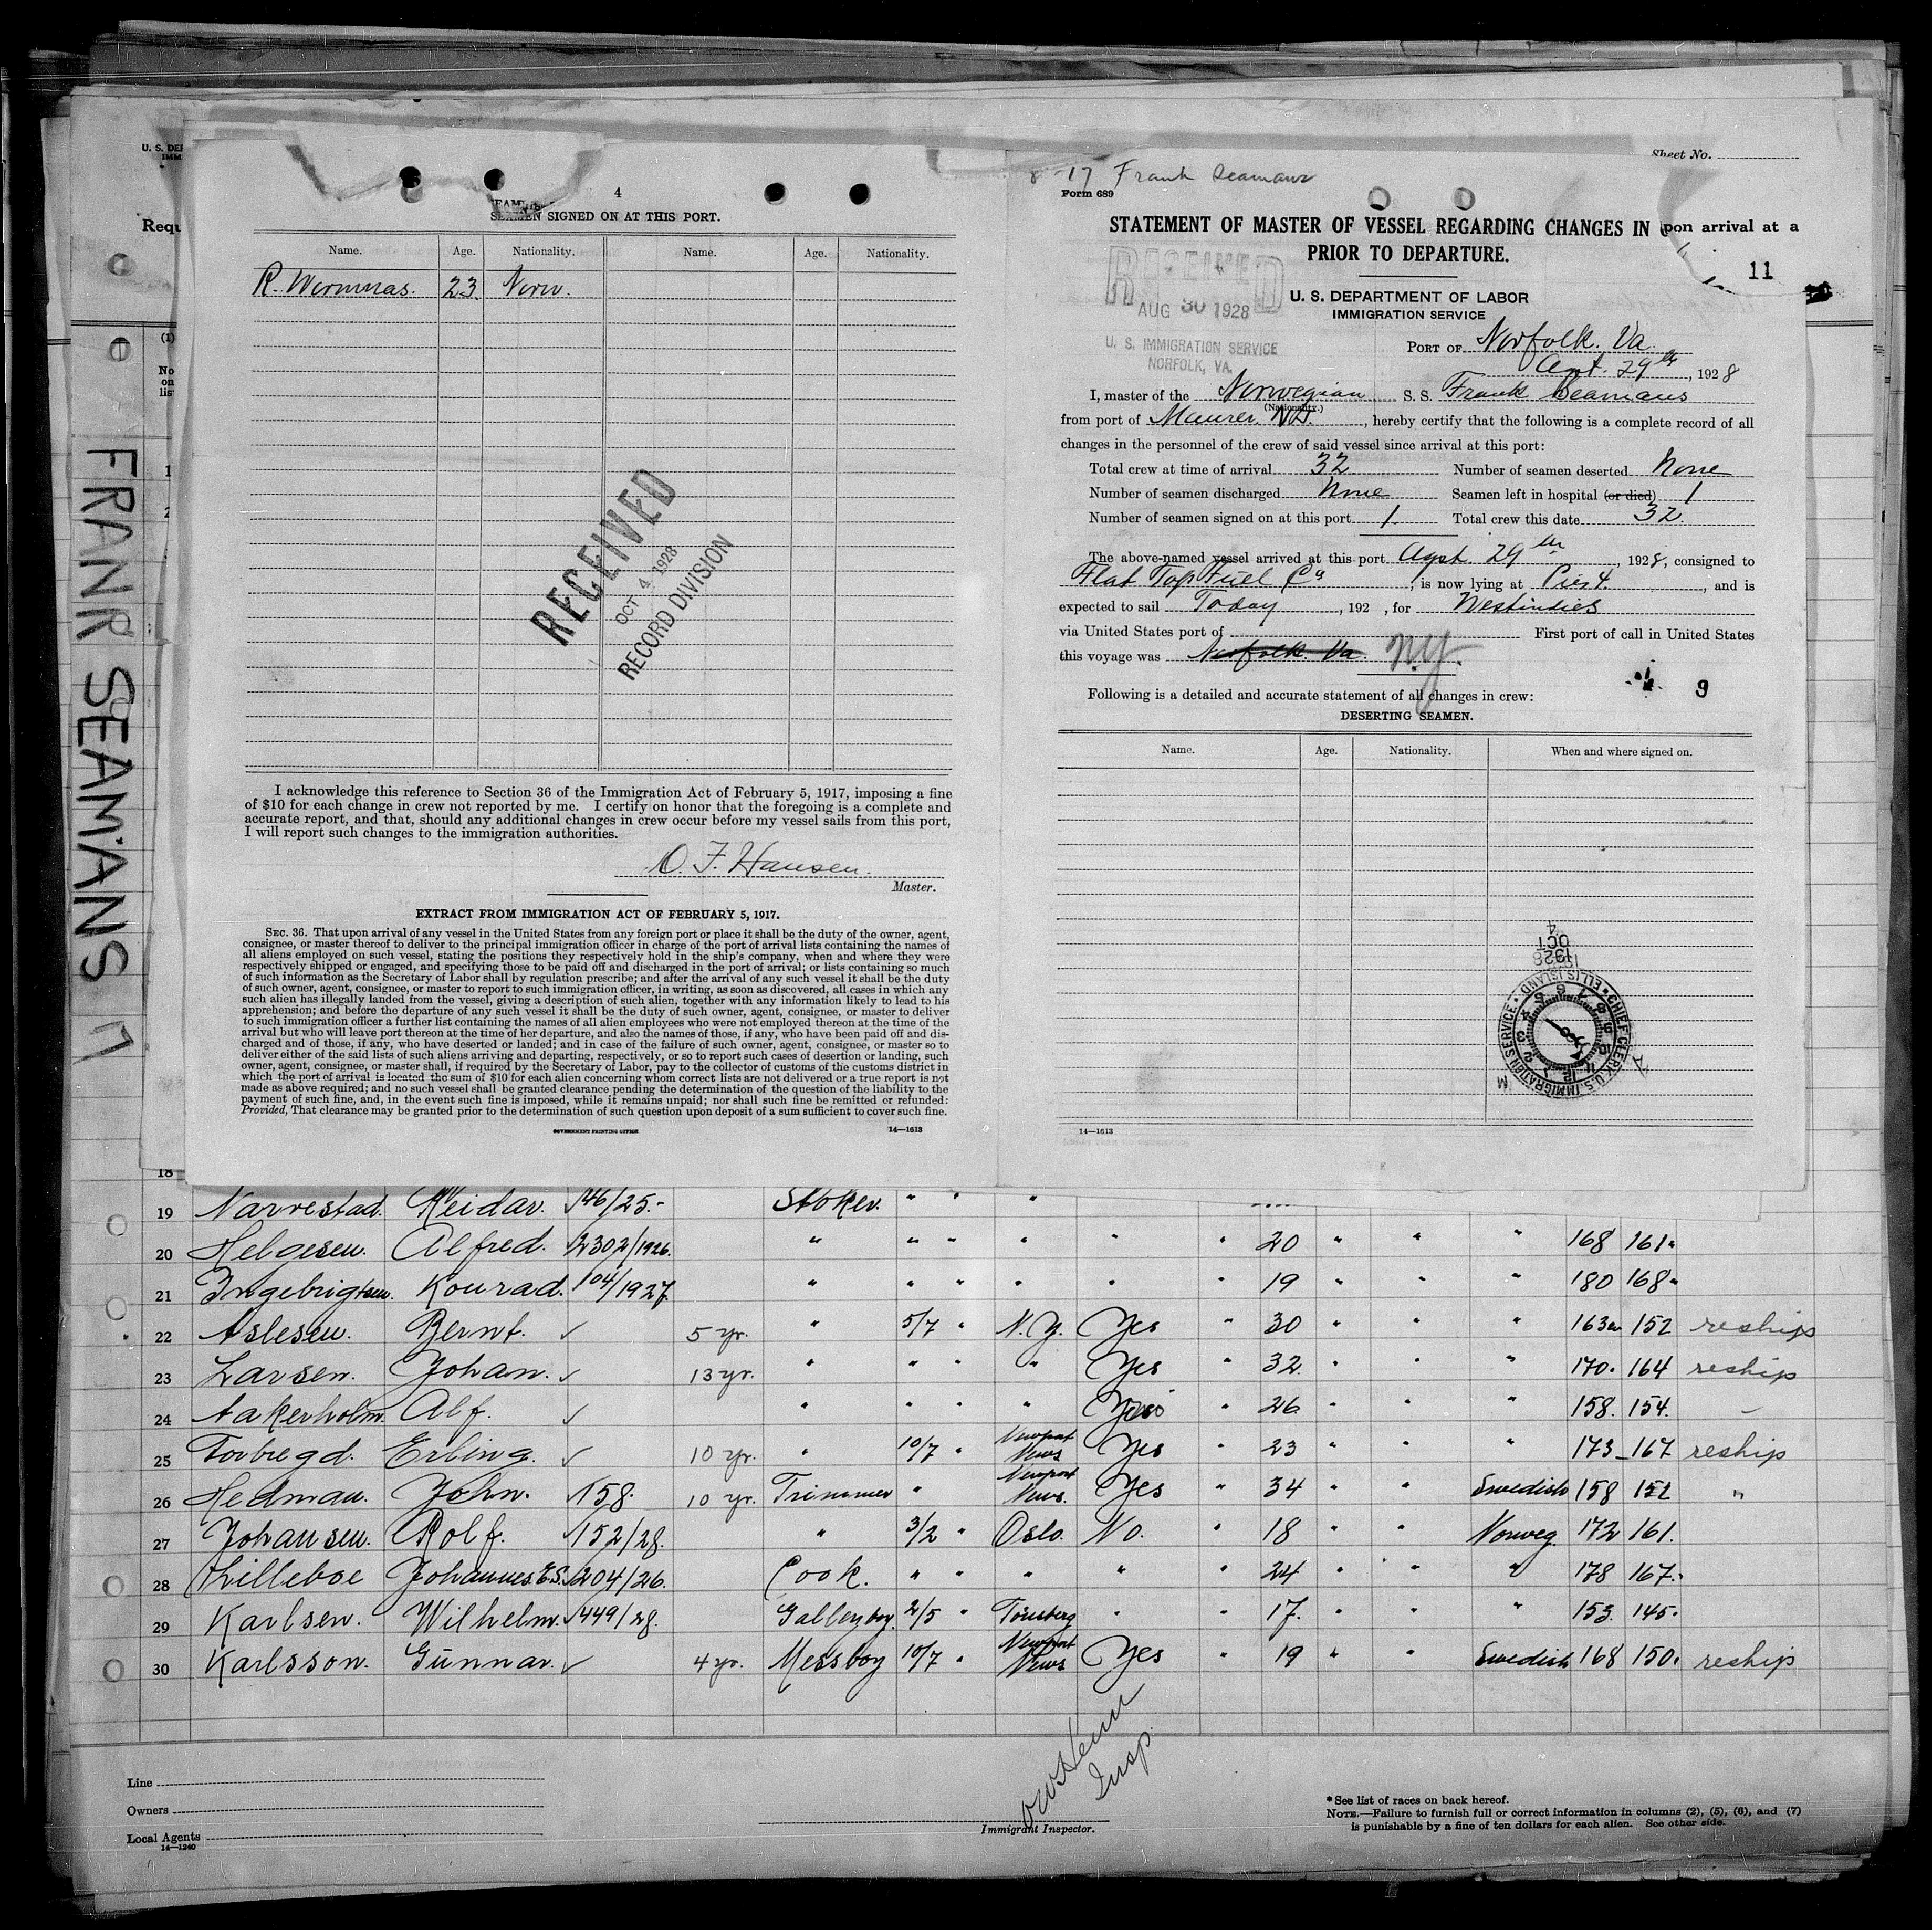 U. S. DE
IMM
Requ
(1)
No
on
lis
1
2
FRANK SEAMANS 17
4
SEAMEN SIGNED ON AT THIS PORT.
Name. Age. Nationality. Name. Age. Nationality.
23 Norw.
RECEIVED
OCT 4 1928
RECORD DIVISION
I acknowledge this reference to Section 36 of the Immigration Act of February 5, 1917, imposing a fine
of $10 for each change in crew not reported by me. I certify on honor that the foregoing is a complete and
accurate report, and that, should any additional changes in crew occur before my vessel sails from this port,
I will report such changes to the immigration authorities.
O. F. Hansen.
Master.
EXTRACT FROM IMMIGRATION ACT OF FEBRUARY 5, 1917.
SEC. 36. That upon arrival of any vessel in the United States from any foreign port or place it shall be the duty of the owner, agent,
consignee, or master thereof to deliver to the principal immigration officer in charge of the port of arrival lists containing the names of
all aliens employed on such vessel, stating the positions they respectively hold in the ship's company, when and where they were
respectively shipped or engaged, and specifying those to be paid off and discharged in the port of arrival; or lists containing so much
of such information as the Secretary of Labor shall by regulation prescribe; and after the arrival of any such vessel it shall be the duty
of such owner, agent, consignee, or master to report to such immigration officer, in writing, as soon as discovered, all cases in which any
such alien has illegally landed from the vessel, giving a description of such alien, together with any information likely to lead to his
apprehension; and before the departure of any such vessel it shall be the duty of such owner, agent, consignee, or master to deliver
to such immigration officer a further list containing the names of all alien employees who were not employed thereon at the time of the
arrival but who will leave port thereon at the time of her departure, and also the names of those, if any, who have been paid off and dis-
charged and of those, if any, who have deserted or landed; and in case of the failure of such owner, agent, consignee, or master so to
deliver either of the said lists of such aliens arriving and departing, respectively, or so to report such cases of desertion or landing, such
owner, agent, consignee, or master shall, if required by the Secretary of Labor, pay to the collector of customs of the customs district in
which the port of arrival is located the sum of $10 for each alien concerning whom correct lists are not delivered or a true report is not
made as above required; and no such vessel shall be granted clearance pending the determination of the question of the liability to the
payment of such fine, and, in the event such fine is imposed, while it remains unpaid; nor shall such fine be remitted or refunded:
Provided, That clearance may be granted prior to the determination of such question upon deposit of a sum sufficient to cover such fine.
GOVERNMENT PRINTING OFFICE
14—1613
Sheet No.
8-17 Frank Seamans
Form 689
STATEMENT OF MASTER OF VESSEL REGARDING CHANGES IN
PRIOR TO DEPARTURE.
pon arrival at a
11
RECEIVED
AUG 30 1928
U. S. IMMIGRATION SERVICE
NORFOLK, VA.
U. S. DEPARTMENT OF LABOR
IMMIGRATION SERVICE
PORT OF Norfolk. Va.
29th, 1928
I, master of the Norwegian S. S. Frank Seamans
(Nationality.)
from port of Maurer. NJ., hereby certify that the following is a complete record of all
changes in the personnel of the crew of said vessel since arrival at this port:
Total crew at time of arrival 32 Number of seamen deserted None
Number of seamen discharged None Seamen left in hospital (or died) 1
Number of seamen signed on at this port 1. Total crew this date 32.
The above-named vessel arrived at this port Agst 29th, 1928, consigned to
Flat Top Fuel Co, is now lying at Pier 4., and is
expected to sail Today, 192 , for Westindies
via United States port of First port of call in United States
this voyage was Norfolk. Va. N.Y.
9
Following is a detailed and accurate statement of all changes in crew:
DESERTING SEAMEN.
Name. Age. Nationality. When and where signed on.
OCT 4
1928
CHIEF CLERK U.S. IMMIGRATION SERVICE • ELLIS ISLAND •
14—1613
18
19 Narrestad. Reidar. 146/25.- Stoker. " " "
20 Helgesen. Alfred. 2302/1926. " " " " " " 20 " " " 168 161.
21 Ingebrigtsen. Konrad. 104/1927. " " " " " " 19 " " " 180 168.
22 Aslesen. Bernt. ✓ 5 yr. " 5/7 " N.Y. Yes " 30 " " " 163 152 reships
23 Larsen. Johan. ✓ 13 yr. " " " " Yes " 32. " " " 170. 164 reship
24 Aakerholm. Alf. ✓ " " " " Yes " 26 " " " 158. 154. –
25 Torbregd. Erling. ✓ 10 yr. " 10/7 " Newport News Yes " 23 " " " 173 167 reship
26 Hedman. John. ✓158. 10 yr. Trimmer " Newport News. Yes " 34 " " Swedish 158 152 "
27 Johansen. Rolf. ✓152/28. " 3/2 " Oslo. No. " 18 " " Norweg. 172 161.
28 Lilleboe Johannes.E.S. 204/26. Cook. " " " " " 24 " " " 178 167.
29 Karlsen. Wilhelm. ✓449/28. Galleyboy. 2/5 " Tönsberg " " 17. " " " 153. 145.
30 Karlsson. Gunnar. ✓ 4 yr. Messboy 10/7 " Newport News Yes " 19 " " Swedish 168 150. reship
Insp.
Line
Owners
Local Agents
14—1240
Immigrant Inspector.
* See list of races on back hereof.
NOTE.—Failure to furnish full or correct information in columns (2), (5), (6), and (7)
is punishable by a fine of ten dollars for each alien. See other side.